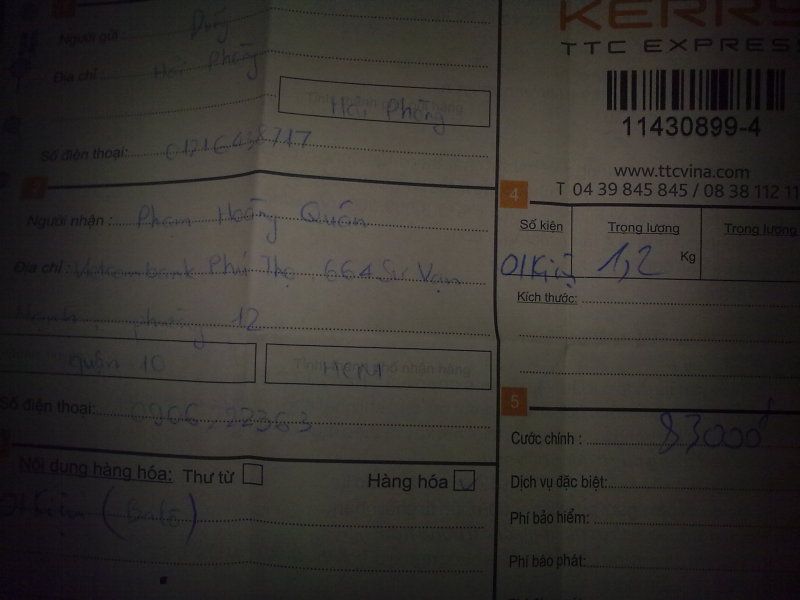 KERRY
TTC EXPRESS
11430899-4
www.ttcvina.com
T 04 39 845 845 / 08 38 112 11
Người gửi :
Địa chỉ : Hải Phòng
Hải Phòng
Số điện thoại:
2
Người nhận : Phạm Hoàng Quân
Địa chỉ : Vietcombank Phú Thọ, 664 Sư Vạn
Hạnh, phường 12
quận 10
HCM
Số điện thoại:
Nội dung hàng hóa: Thư từ
Hàng hóa
01 kiện
4
Số kiện
Trọng lượng
Trọng lượng
01 kiện
1,2 Kg
Kích thước:
5
Cước chính : 83000đ
Dịch vụ đặc biệt:
Phí bảo hiểm:
Phí báo phát: